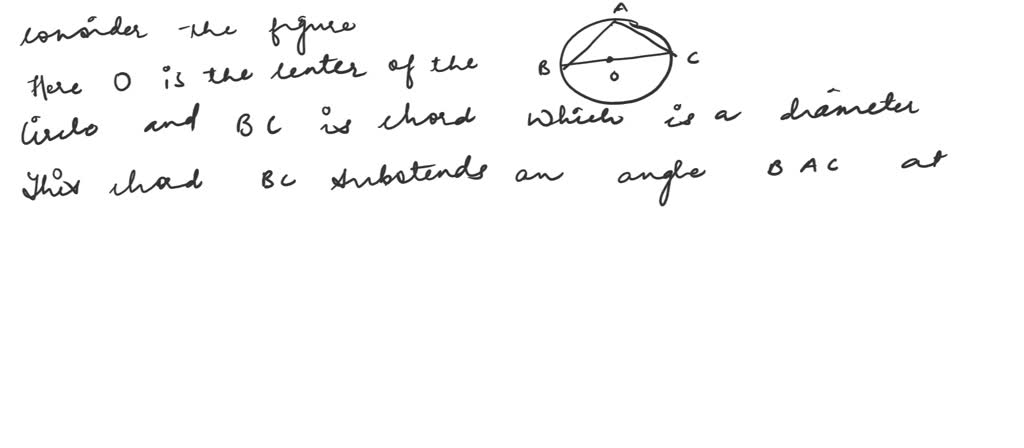 consider the figure
A
B
C
O
Here O is the center of the
Circle and BC is chord which is a diameter
This chord BC substends an angle BAC at